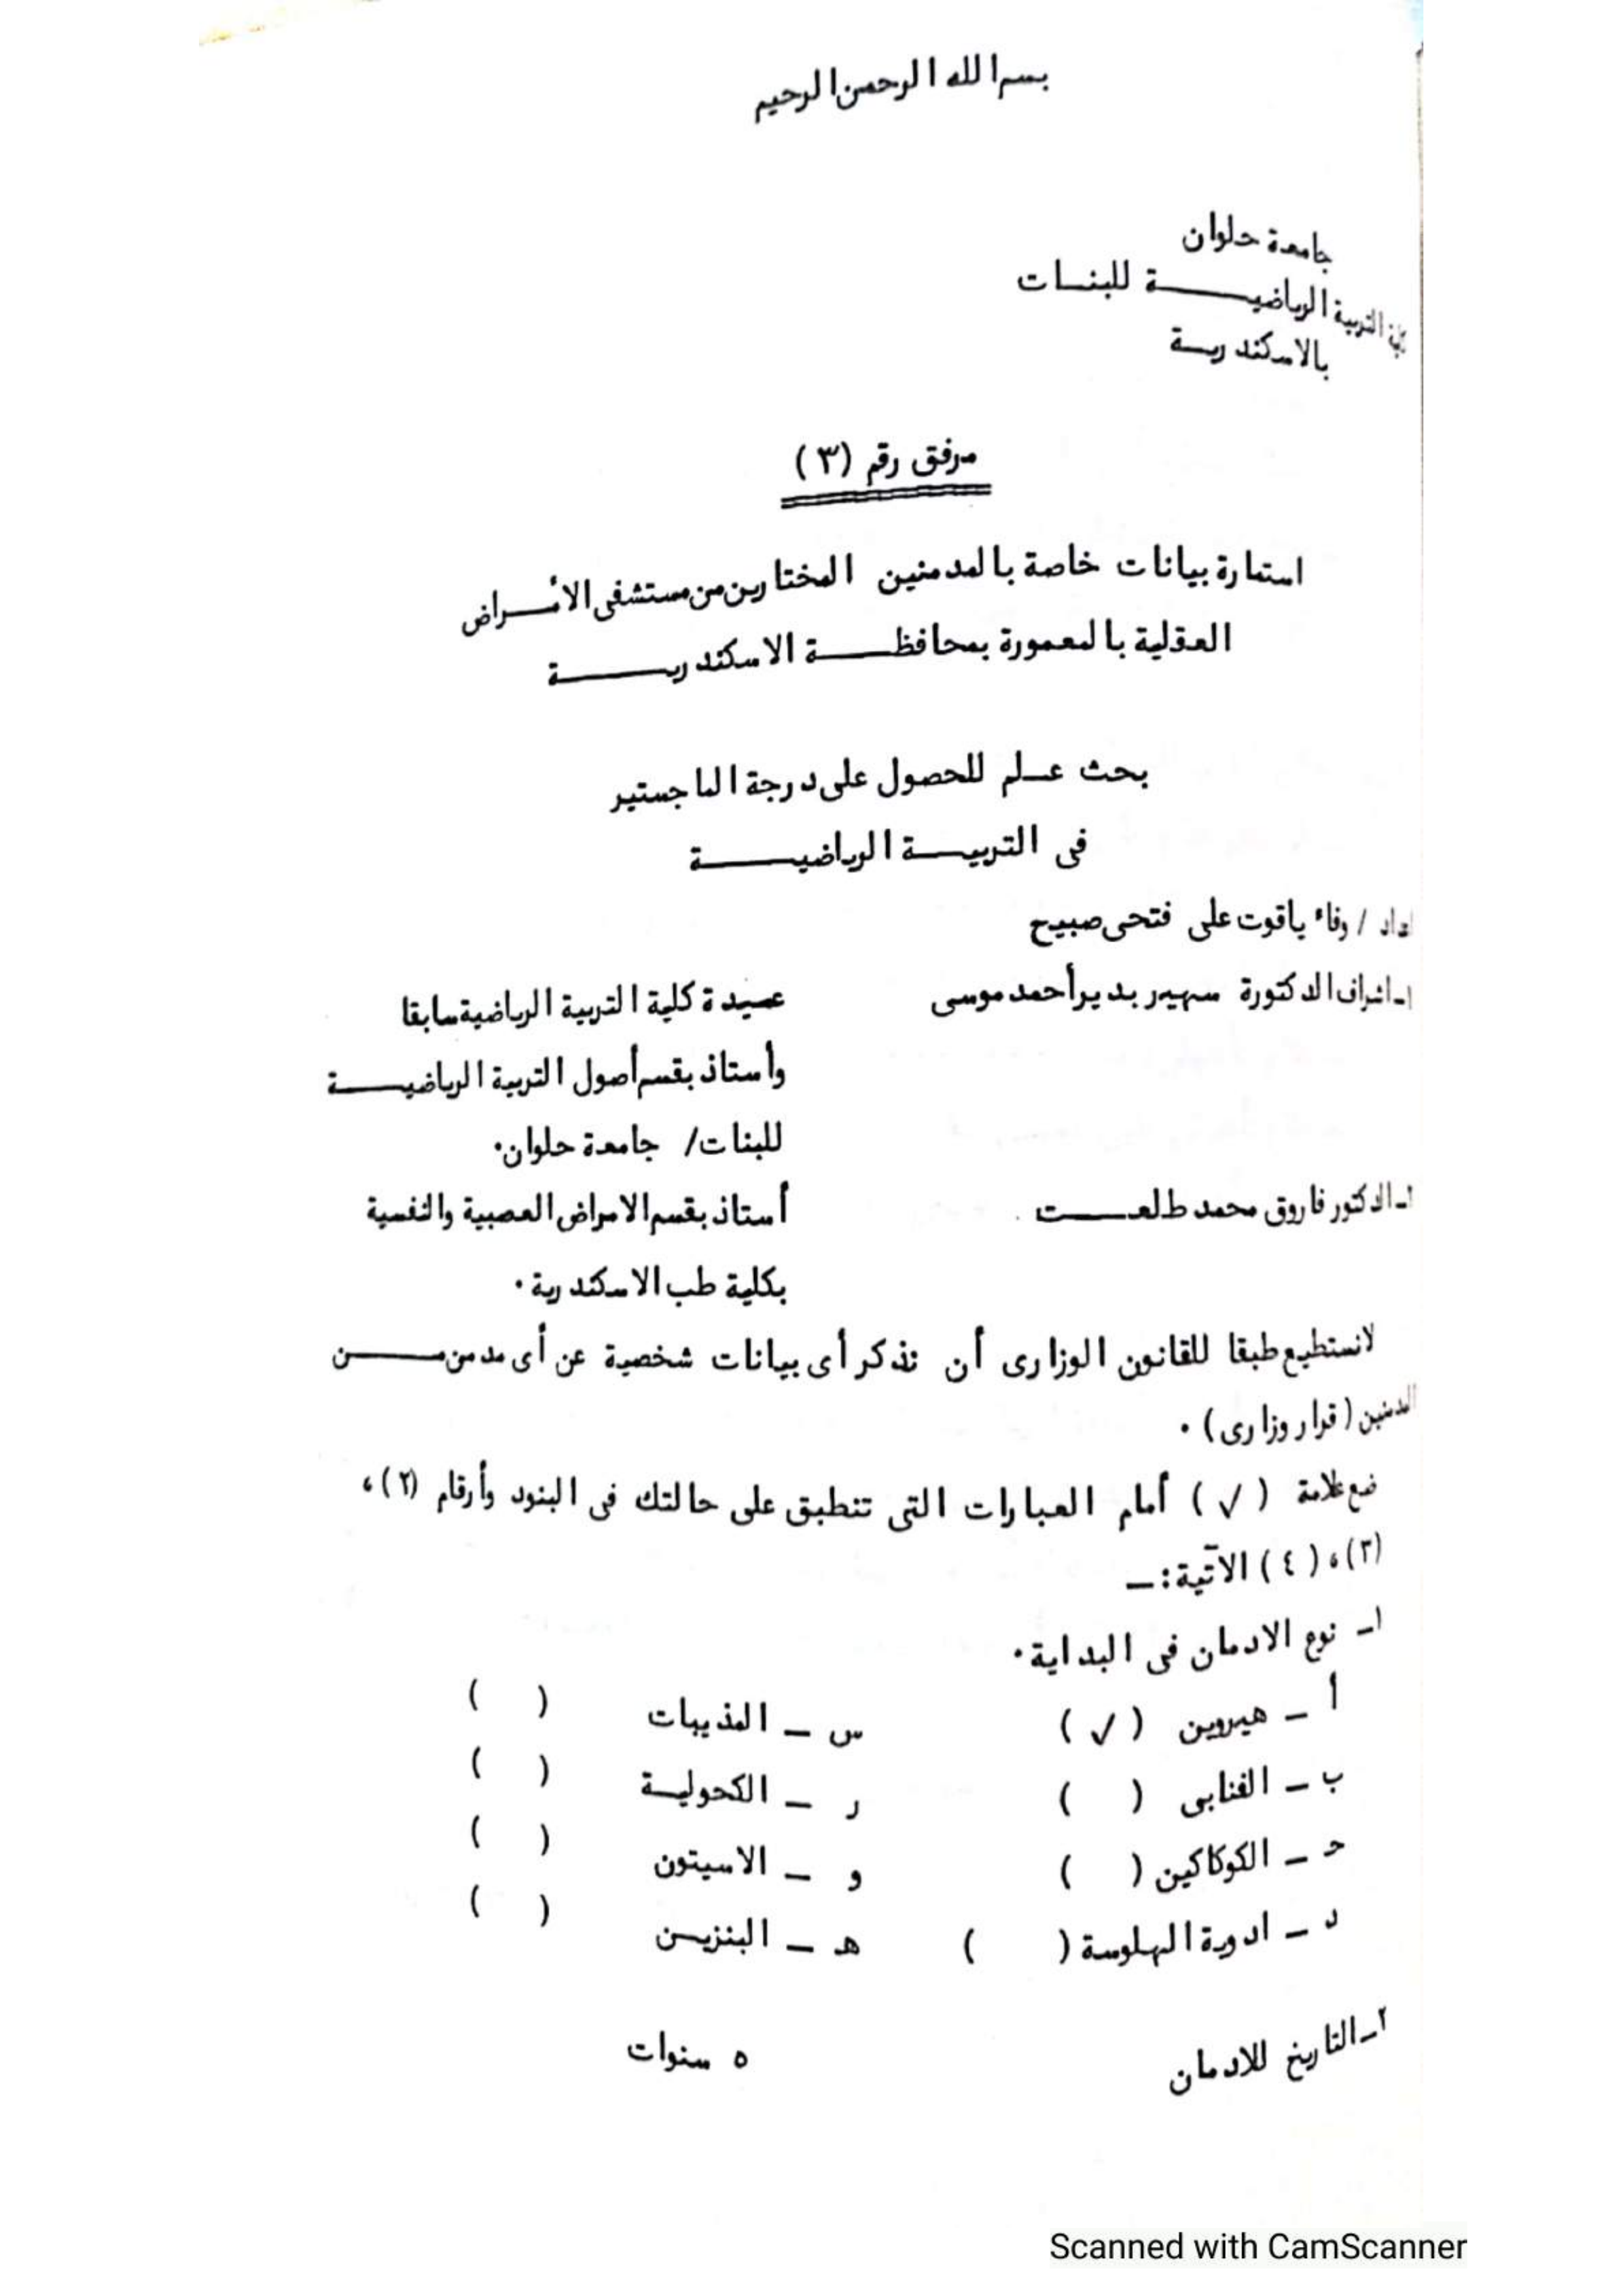 بسم الله الرحمن الرحيم
جامعة حلوان
التربية الرياضيـــــة للبنـات
بالاسكندريـة
مرفق رقم (٣)
استمارة بيانات خاصة بالمدمنين المختارين من مستشفى الأمــراض
العقلية بالمعمورة بمحافظــــة الاسكندريـــــة
بحث عـلم للحصول على درجة الماجستير
فى التربيـــة الرياضيـــــة
/ وفاء ياقوت على فتحى صبيح
اشراف الدكتورة سهير بدير أحمد موسى عميدة كلية التربية الرياضية سابقا
وأستاذ بقسم أصول التربية الرياضيـــــة
للبنات/ جامعة حلوان٠
٢ـ الدكتور فاروق محمد طلعـــــت أستاذ بقسم الامراض العصبية والنفسية
بكلية طب الاسكندرية ٠
لانستطيع طبقا للقانون الوزارى أن نذكر أى بيانات شخصية عن أى مدمن مـــــن
المدمنين (قرار وزارى) ٠
ضع علامة ( √ ) أمام العبارات التى تنطبق على حالتك فى البنود وأرقام (٢)،
(٣)، (٤) الآتية : ــ
١ـ نوع الادمان فى البداية ٠
أ ـ هيروين ( √ ) س ـ المذيبات ( )
ب ـ القنابى ( ) ر ـ الكحوليـة ( )
حـ ـ الكوكاكين ( ) و ـ الاسيتون ( )
د ـ ادوية الهلوسة ( ) هـ ـ البنزيـن ( )
٢ـ التاريخ للادمان ٥ سنوات
Scanned with CamScanner